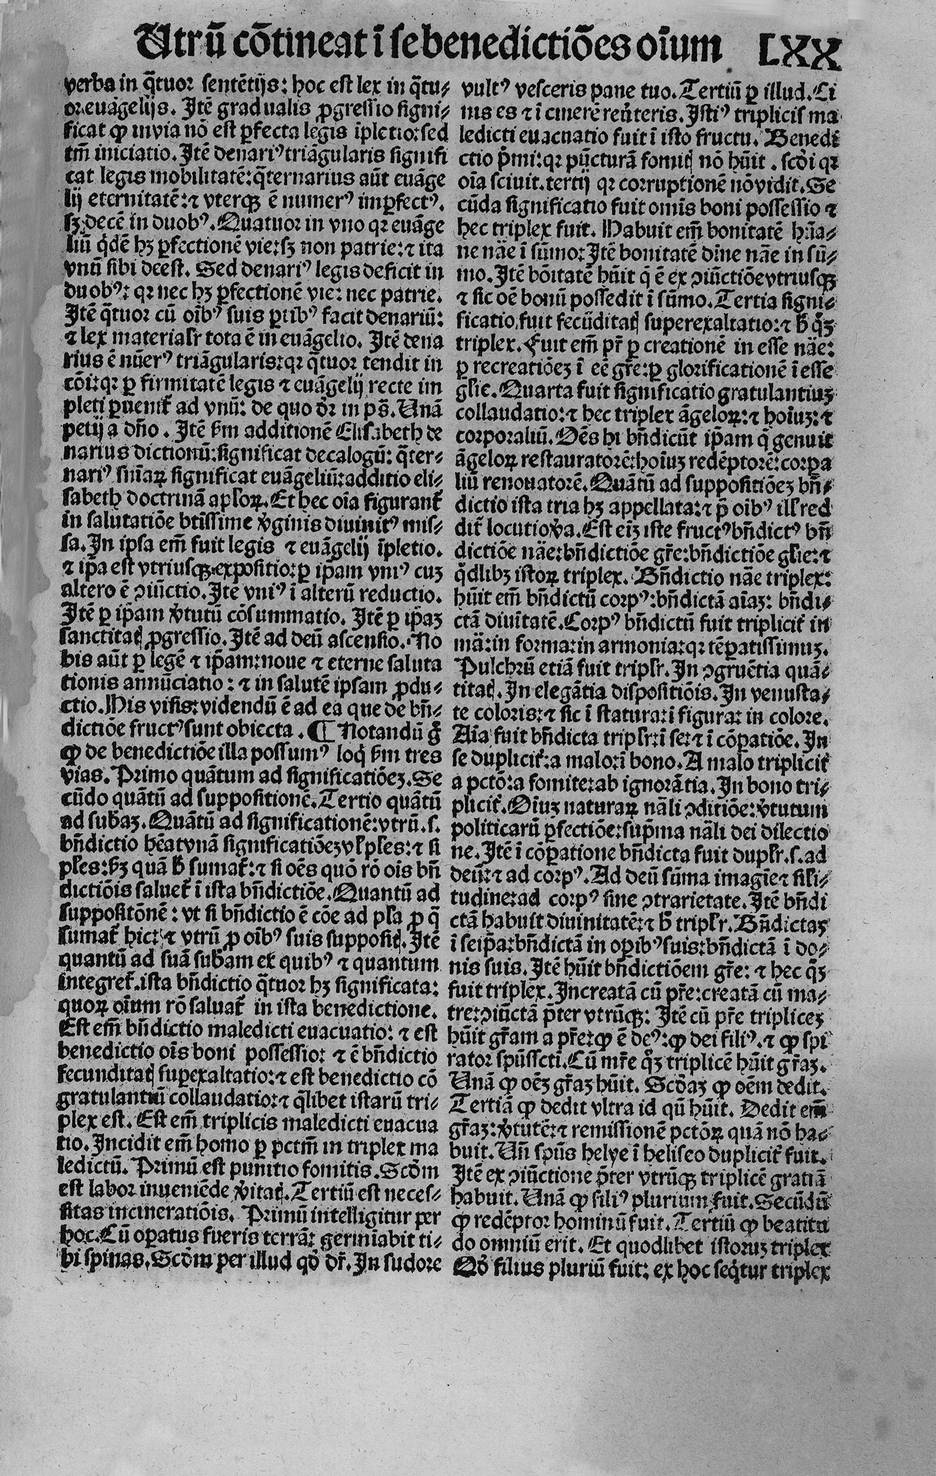 Utrũ cõtineat ĩ se benedictiões oĩum LXX
verba in q̃tuor sentẽtijs: hoc est lex in q̃tu⸗
or euãgelijs. Itẽ gradualis ꝓgressio signi⸗
ficat ꝙ in via nõ est ꝑfecta legis ĩpletio: sed
tm̃ iniciatio. Itẽ denariꝰ triãgularis signifi
cat legis mobilitatẽ: q̃ternarius aũt euãge
lij eternitatẽ: ⁊ vterqꝫ ẽ numerꝰ imꝑfectꝰ.
sꝫ decẽ in duobꝰ. Quatuor in vno qꝛ euãge
liũ q̃dẽ hꝫ ꝑfectionẽ vie: sꝫ non patrie: ⁊ ita
vnũ sibi deest. Sed denariꝰ legis deficit in
duobꝰ: qꝛ nec hꝫ ꝑfectionẽ vie: nec patrie.
Itẽ q̃tuor cũ oĩbꝰ suis ꝑtibꝰ facit denariũ:
⁊ lex materialr̃ tota ẽ in euãgelio. Itẽ dena
rius ẽ nũerꝰ triãgularis: qꝛ q̃tuor tendit in
cõi: qꝛ ꝑ firmitatẽ legis ⁊ euãgelij recte im
pleti ꝑuenit̃ ad vnũ: de quo dr̃ in ps̃. Unã
petij a dño. Itẽ ẜm additionẽ Elisabeth de
narius dictionũ: significat decalogũ: q̃ter⸗
nariꝰ sniaꝝ significat euãgeliũ: additio eli⸗
sabeth doctrinã aploꝝ. Et hec oĩa figurant̃
in salutatiõe btissime v̓ginis diuinitꝰ mis⸗
sa. In ipsa em̃ fuit legis ⁊ euãgelij ĩpletio.
⁊ ip̃a est vtriusqꝫ expositio: ꝑ ip̃am vniꝰ cuꝫ
altero ẽ ꝯiũctio. Itẽ vniꝰ ĩ alterũ reductio.
Itẽ ꝑ ip̃am v̓tutũ cõsummatio. Itẽ ꝑ ip̃aꝫ
sanctitaꝭ ꝓgressio. Itẽ ad deũ ascensio. No
bis aũt ꝑ legẽ ⁊ ip̃am: noue ⁊ eterne saluta
tionis annũciatio: ⁊ in salutẽ ipsam ꝓdu⸗
ctio. His visis: videndũ ẽ ad ea que de bñ⸗
dictiõe fructꝰ sunt obiecta. ¶ Notandũ g̃
ꝙ de benedictiõe illa possumꝰ loq̃ ẜm tres
vias. Primo quãtum ad significatiõeꝫ. Se
cũdo quãtũ ad suppositionẽ. Tertio quãtũ
ad subaꝫ. Quãtũ ad significationẽ: vtrũ .s.
bñdictio hẽat vnã significatiõeꝫ vl̓ ples: ⁊ si
ples: ẜꝫ quã b̓ sumat̃: ⁊ si oẽs quo rõ oĩs bñ
dictiõis saluet̃ ĩ ista bñdictiõe. Quantũ ad
suppositõnẽ: vt si bñdictio ẽ cõe ad pl̓a ꝓ q̃
sumat̃ hic: ⁊ vtrũ ꝓ oĩbꝰ suis suppositꝭ. Itẽ
quantũ ad suã subam ex quibꝰ ⁊ quantum
integret̃. ista bñdictio q̃tuor hꝫ significata:
quoꝝ oĩum rõ saluat̃ in ista benedictione.
Est em̃ bñdictio maledicti euacuatio: ⁊ est
benedictio oĩs boni possessio: ⁊ ẽ bñdictio
fecunditaꝭ suꝑexaltatio: ⁊ est benedictio cõ
gratulantiũ collaudatio: ⁊ q̃libet istarũ tri⸗
plex est. Est em̃ triplicis maledicti euacua
tio. Incidit em̃ homo ꝑ pctm̃ in triplex ma
ledictũ. Primũ est punitio fomitis. Scd̃m
est labor inueniẽde v̓itaꝭ. Tertiũ est neces⸗
sitas incineratiõis. Primũ intelligitur per
hoc. Cũ oꝑatus fueris terrã: germiabit ti⸗
bi spinas. Scd̃m per illud qd̓ dr̃. In sudore
vultꝰ vesceris pane tuo. Tertiũ ꝑ illud. Ci
nis es ⁊ ĩ cinerẽ reũteris. Istiꝰ triplicis ma
ledicti euacuatio fuit ĩ isto fructu. Benedi
ctio p̃mi: qꝛ pũcturã fomitꝭ nõ hũit. scd̓i qꝛ
oĩa sciuit. tertij qꝛ corruptionẽ nõ vidit. Se
cũda significatio fuit omĩs boni possessio ⁊
hec triplex fuit. Habuit em̃ bonitatẽ hũa⸗
ne nãe ĩ sũmo: Itẽ bonitatẽ diĩne nãe in sũ⸗
mo. Itẽ bõitatẽ hũit q̃ ẽ ex ꝯiũctiõe vtriusqꝫ
⁊ sic oẽ bonũ possedit ĩ sũmo. Tertia signi⸗
ficatio fuit fecũditaꝭ superexaltatio: ⁊ b̓ q̃ꝫ
triplex. Fuit em̃ pr̃ ꝑ creationẽ in esse nãe:
ꝑ recreatiõeꝫ ĩ eẽ gr̃e: ꝑ glorificationẽ ĩ esse
gl̓ie. Quarta fuit significatio gratulantiuꝫ
collaudatio: ⁊ hec triplex ãgeloꝝ: ⁊ hoĩuꝫ: ⁊
corporaliũ. Oẽs hi bñdicũt ip̃am q̃ genuit
ãgeloꝝ restauratorẽ: hoĩuꝫ redẽptorẽ: corpa
liũ renouatorẽ. Quãtũ ad suppositiõeꝫ bñ⸗
dictio ista tria hꝫ appellata: ⁊ p̃ oĩbꝰ illꝭ red
dit̃ locutio v̓a. Est eĩꝫ iste fructꝰ bñdictꝰ bñ
dictiõe nãe: bñdictiõe gr̃e: bñdictiõe gl̓ie: ⁊
q̃dlibꝫ istoꝝ triplex. Bñdictio nãe triplex:
hũit em̃ bñdictũ corpꝰ: bñdictã aĩaꝫ: bñdi⸗
ctã diuitatẽ. Corpꝰ bñdictũ fuit triplicit̃ in
mã: in forma: in armonia: qꝛ tẽꝑatissimuꝫ.
Pulchrũ etiã fuit triplr̃. In ꝯgruẽtia quã⸗
titaꝭ. In elegãtia dispositiõis. In venusta⸗
te coloris: ⁊ sic ĩ statura: ĩ figura: in colore.
Aĩa fuit bñdicta triplr̃: ĩ se: ⁊ ĩ cõꝑatiõe. In
se duplicit̃: a malo: ĩ bono. A malo triplicit̃
a pctõ: a fomite: ab ignorãtia. In bono tri⸗
plicit̃. Oĩuꝫ naturaꝝ nãli ꝯditiõe: v̓tutum
politicarũ ꝑfectiõe: sup̃ma nãli dei dilectio
ne. Itẽ ĩ cõꝑatione bñdicta fuit duplr̃ .s. ad
deũ: ⁊ ad corpꝰ. Ad deũ sũma imagĩe ⁊ sili⸗
tudine: ad corpꝰ sine ꝯtrarietate. Itẽ bñdi
ctã habuit diuinitatẽ: ⁊ b̓ triplr̃. Bñdictaꝫ
ĩ seip̃a: bñdictã in oꝑibꝰ suis: bñdictã ĩ do⸗
nis suis. Itẽ hũit bñdictiõem gr̃e: ⁊ hec q̃ꝫ
fuit triplex. Increatã cũ pr̃e: creatã cũ ma⸗
tre: ꝯiũctã p̃ter vtrũqꝫ: Itẽ cũ pr̃e triplicez
hũit gr̃am a pr̃e: ꝙ ẽ deꝰ: ꝙ dei filiꝰ. ⁊ ꝙ spi
rator spũssct̃i. Cũ mr̃e q̃ꝫ triplicẽ hũit gr̃aꝫ.
Unã ꝙ oẽꝫ gr̃aꝫ hũit. Scd̓aꝫ ꝙ oẽm dedit.
Tertiã ꝙ dedit vltra id qũ hũit. Dedit em̃
gr̃aꝫ: v̓tutẽ: ⁊ remissionẽ pctõꝝ quã nõ ha⸗
buit. Uñ spũs helye ĩ heliseo duplicit̃ fuit.
Itẽ ex ꝯiũctione p̃ter vtrũqꝫ triplicẽ gratiã
habuit. Unã ꝙ filiꝰ plurium fuit. Secũdũ
ꝙ redẽptor hominũ fuit. Tertiũ ꝙ beatitu
do omniũ erit. Et quodlibet istoruꝫ triplex
Qd̓ filius pluriũ fuit: ex hoc seq̃tur triplex